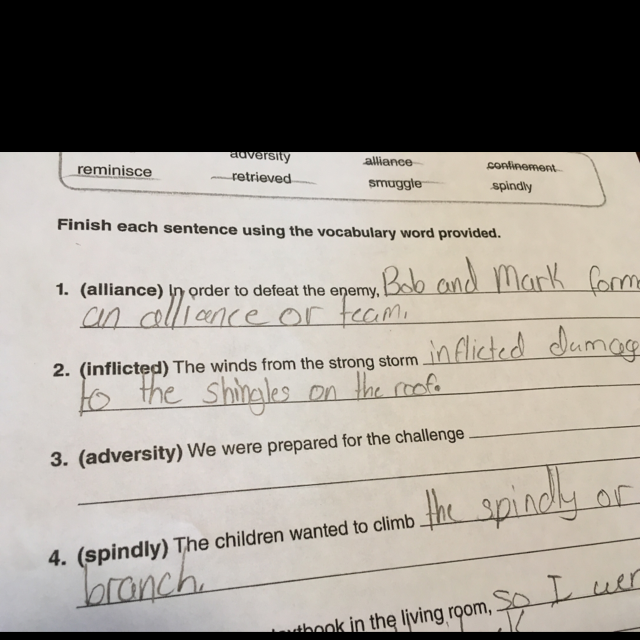 adversity alliance confinement
reminisce retrieved smuggle spindly
Finish each sentence using the vocabulary word provided.
1. (alliance) In order to defeat the enemy, Bob and Mark form
an alliance or team.
2. (inflicted) The winds from the strong storm inflicted damage
to the shingles on the roof.
3. (adversity) We were prepared for the challenge
4. (spindly) The children wanted to climb the spindly or
branch.
in the living room, so I wer